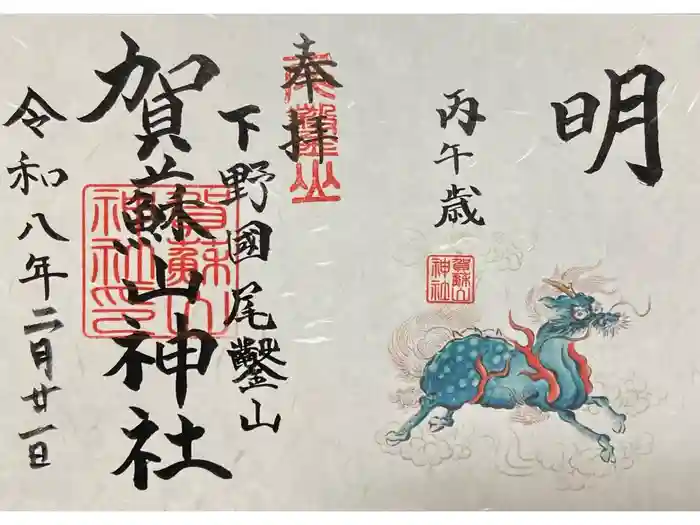 明
丙午歳
賀蘇山
神社
奉拝
下野國尾鑿山
賀蘓山神社
令和八年二月廿一日